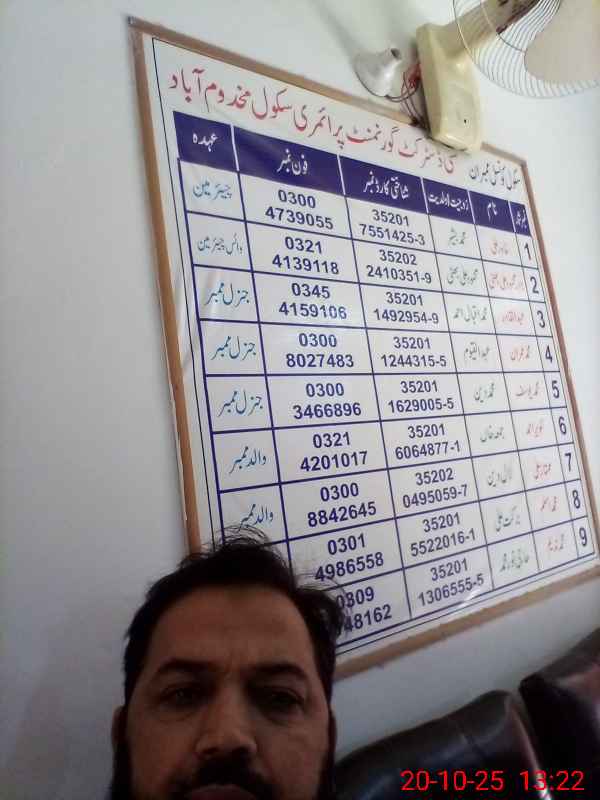 سکول کونسل ممبران سٹی ڈسٹرکٹ گورنمنٹ پرائمری سکول مخدوم آباد
نمبر شمار نام زوجیت/ولدیت شناختی کارڈ نمبر فون نمبر عہدہ
1 محمد بشیر 35201 7551425-3 0300 4739055 چیئرمین
2 محمود علی بھٹی 35202 2410351-9 0321 4139118 وائس چیئرمین
3 محمد اقبال احمد 35201 1492954-9 0345 4159106 جنرل ممبر
4 محمد عمران عبدالقیوم 35201 1244315-5 0300 8027483 جنرل ممبر
5 محمد یوسف محمد دین 35201 1629005-5 0300 3466896 جنرل ممبر
6 تنویر احمد جمعہ خان 35201 6064877-1 0321 4201017 والد ممبر
7 لال دین 35202 0495059-7 0300 8842645 والد ممبر
8 محمد اسلم برکت علی 35201 5522016-1 0301 4986558
9 محمد ندیم حاجی نور محمد 35201 1306555-5 0309
20-10-25 13:22